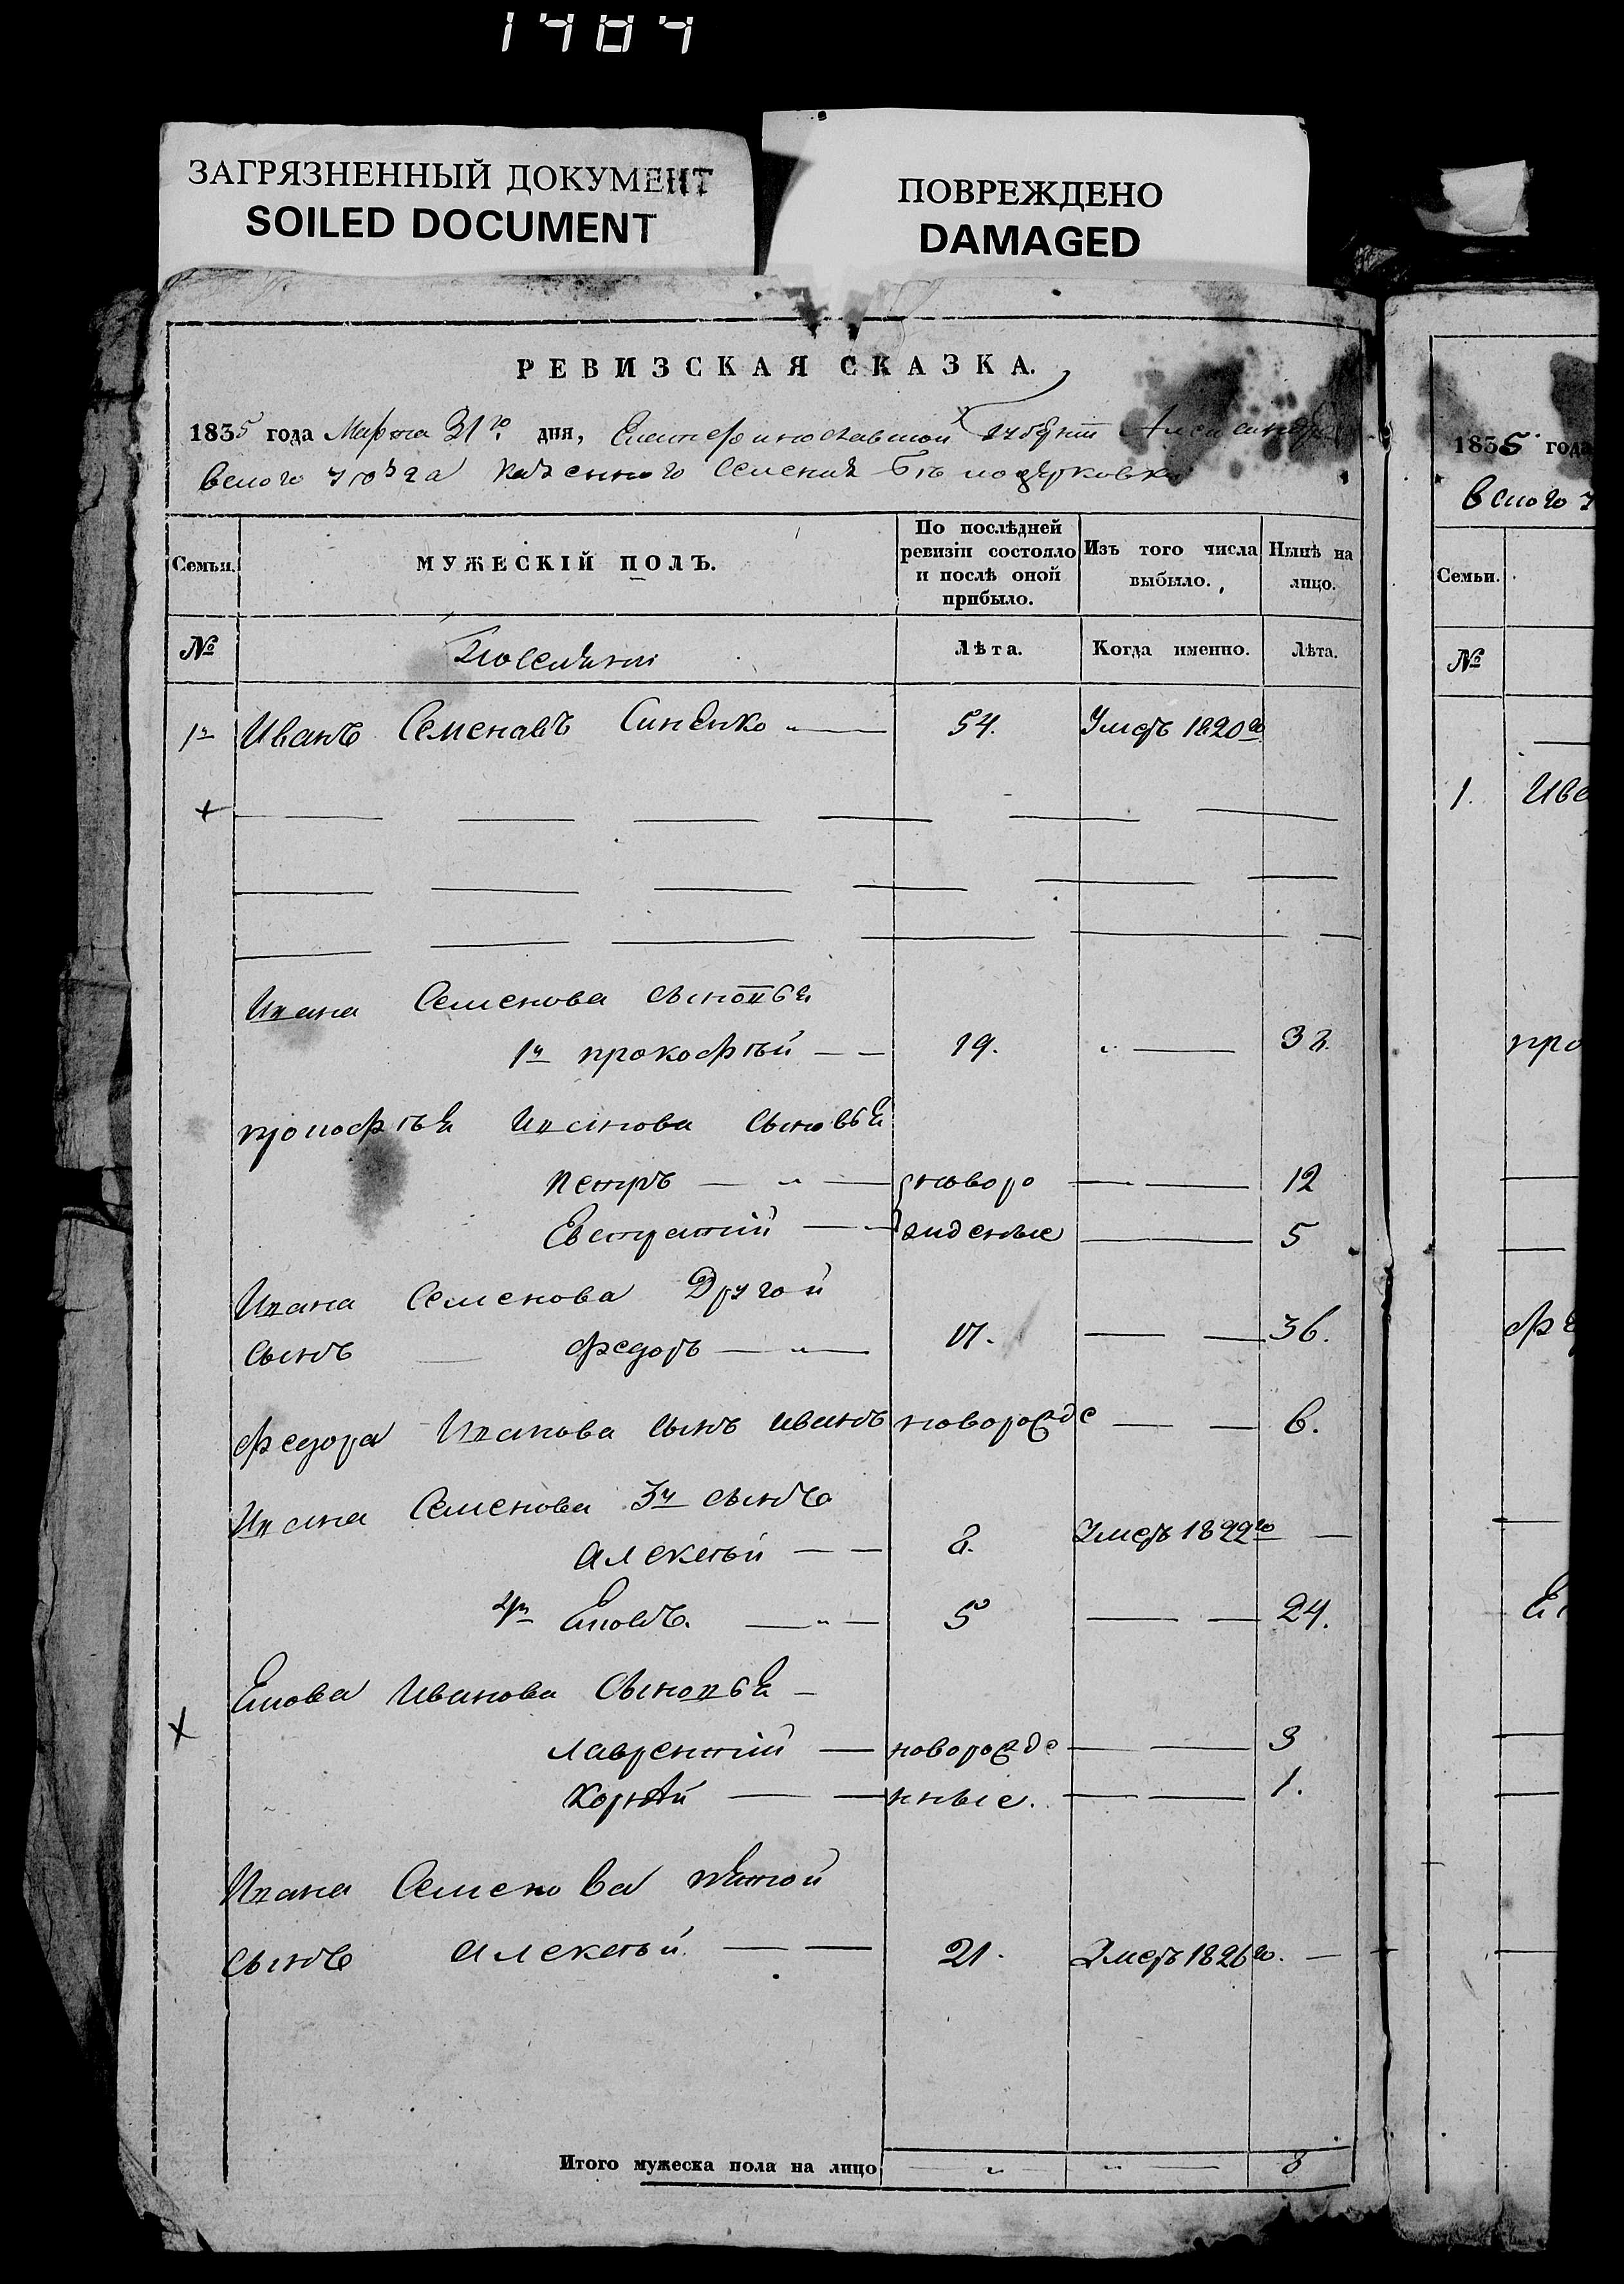 1484
ЗАГРЯЗНЕННЫЙ ДОКУМЕНТ
SOILED DOCUMENT
ПОВРЕЖДЕНО
DAMAGED
РЕВИЗСКАЯ СКАЗКА.
1835 года Марта 31го дня, Екатеринославской Губерніи Александро
вского уѣзда казенного селенія
Семьи.
МУЖЕСКІЙ ПОЛЪ.
По послѣдней ревизіи состояло и послѣ оной прибыло.
Изъ того числа выбыло.
Нынѣ на лицо.
№
Поселяни
Лѣта.
Когда именно.
Лѣта.
1й Иванъ Семеновъ Синенко 54. Умеръ 1820го
Ивана Семенова сыновья
1й прокофѣй 19. 38.
прокофѣя Иванова сыновья
петръ новоро 12
Евстратій жденые 5
Ивана Семенова Другой
сынъ федоръ 17. 36.
федора Иванова сынъ иванъ новорожде 6.
Ивана Семенова 3й сынъ
алексѣй 8. Умеръ 1822го
4й Яковъ. 5 24.
Якова Иванова сыновья
лаврентій новорожде 3
Корнѣй нные. 1.
Ивана Семенова пятой
сынъ алексѣй. 21. Умеръ 1826го.
Итого мужеска пола на лицо 8
1835 года
вского у
Семьи.
№
1. Ива
про
фе